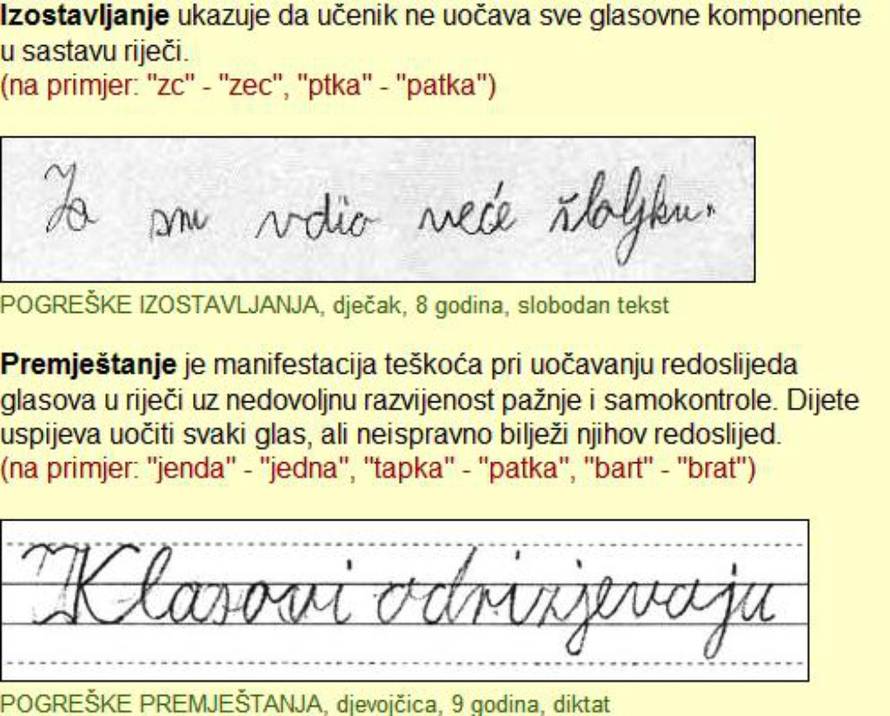 Izostavljanje ukazuje da učenik ne uočava sve glasovne komponente
u sastavu riječi.
(na primjer: "zc" - "zec", "ptka" - "patka")
Ja sm vdio veće šloljku.
POGREŠKE IZOSTAVLJANJA, dječak, 8 godina, slobodan tekst
Premještanje je manifestacija teškoća pri uočavanju redoslijeda
glasova u riječi uz nedovoljnu razvijenost pažnje i samokontrole. Dijete
uspijeva uočiti svaki glas, ali neispravno bilježi njihov redoslijed.
(na primjer: "jenda" - "jedna", "tapka" - "patka", "bart" - "brat")
Klasovi odrizjevaju
POGREŠKE PREMJEŠTANJA, djevojčica, 9 godina, diktat